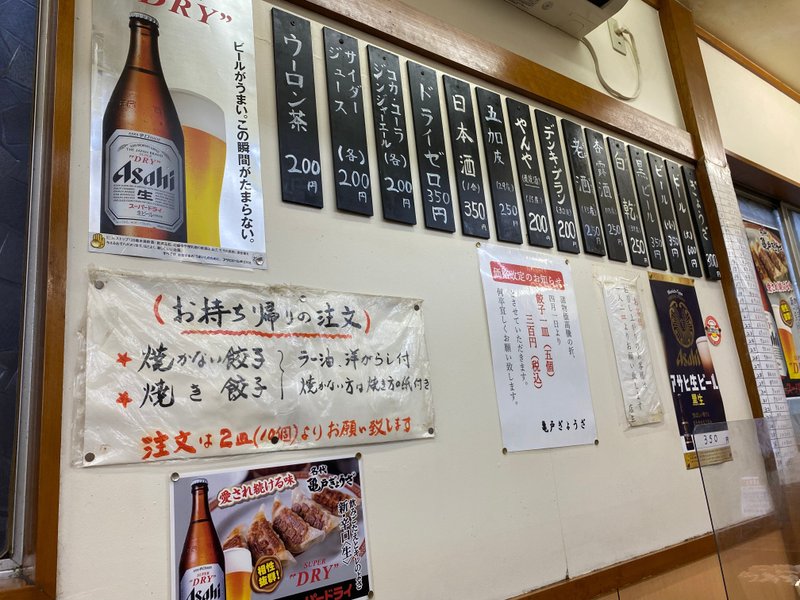 "DRY"
ビールがうまい。この瞬間がたまらない。
Asahi
生
スーパードライ
ウーロン茶 200円
サイダー
ジュース (各) 200円
コカ・コーラ
ジンジャーエール (各) 200円
ドライゼロ 350円
日本酒 (1合) 350
五加皮 250
やんや 200
デンキブラン 200
老酒 250
杏露酒 250
白乾 250
黒ビール 350
ビール 350
ビール (大) 600円
ぎょうざ 300
(お持ち帰りの注文)
★焼かない餃子 ラー油、洋がらし付
★焼き餃子 焼かない方は焼き方の紙付き
注文は2皿(10個)よりお願い致します
価格改定のお知らせ
諸物価高騰の折、
四月一日より
餃子一皿(五個)
三百円(税込)
とさせていただきます。
何卒宜しくお願い致します。
亀戸ぎょうざ
Asahi
アサヒ生ビール
黒生
350円
愛され続ける味
名代
亀戸ぎょうざ
新・辛口〈生〉
相性
抜群!
SUPER
"DRY"
Asahi
スーパードライ